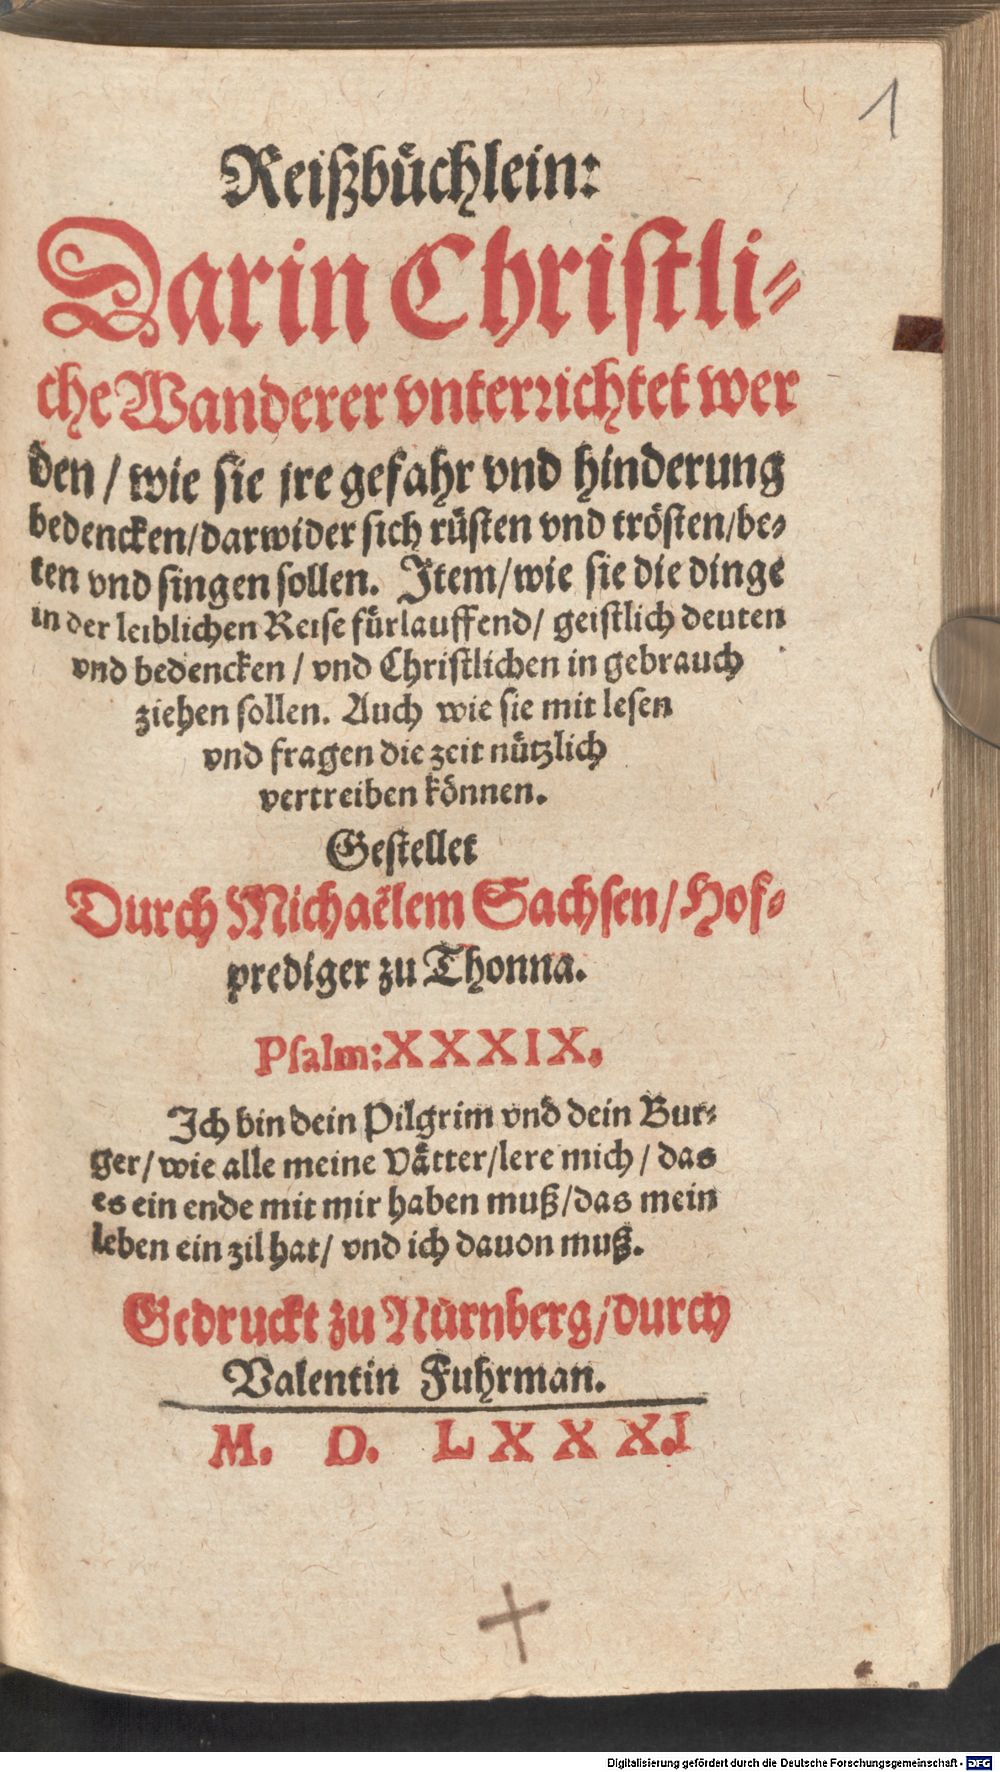 1
Reißbüchlein:
Darin Christli-
che Wanderer vnterrichtet wer
den / wie sie jre gefahr vnd hinderung
bedencken/darwider sich rüsten vnd trösten/be-
ten vnd singen sollen. Item/wie sie die dinge
in der leiblichen Reise fürlauffend/ geistlich deuten
vnd bedencken / vnd Christlichen in gebrauch
ziehen sollen. Auch wie sie mit lesen
vnd fragen die zeit nützlich
vertreiben können.
Gestellet
Durch Michaëlem Sachsen/Hof-
prediger zu Thonna.
Psalm:XXXIX.
Ich bin dein Pilgrim vnd dein Bur-
ger/wie alle meine Vätter/lere mich/das
es ein ende mit mir haben muß/das mein
leben ein zil hat/ vnd ich dauon muß.
Gedruckt zu Nürnberg/durch
Valentin Fuhrman.
M. D. LXXX.I
Digitalisierung gefördert durch die Deutsche Forschungsgemeinschaft - DFG